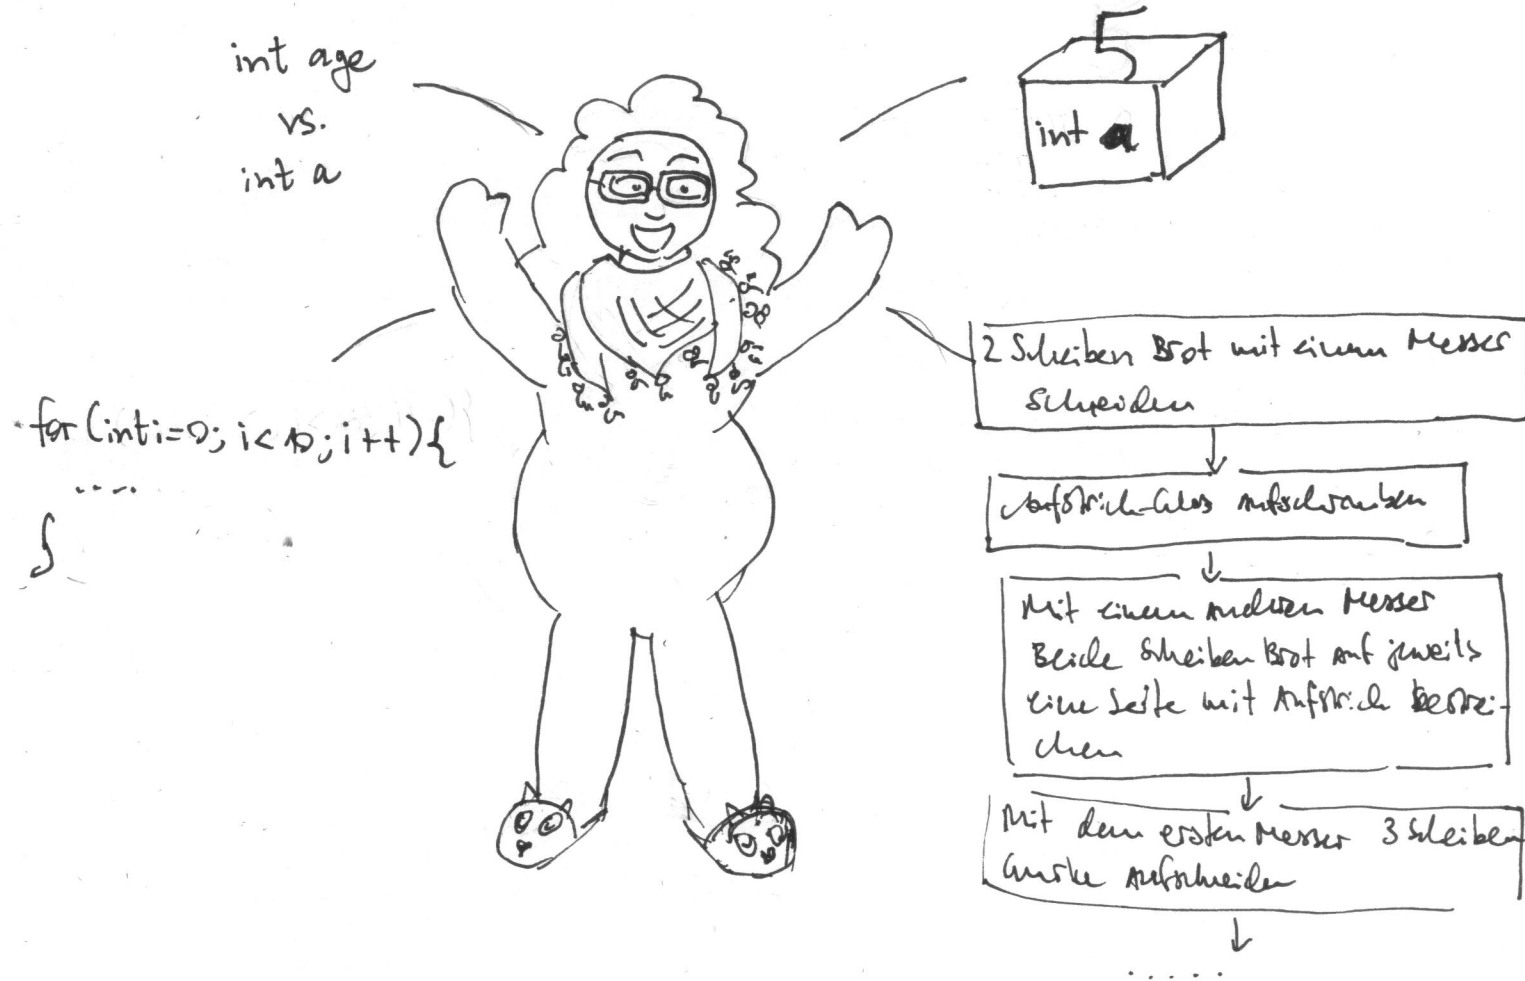 int age
vs.
int a
int a
for (int i=0; i<10; i++){
....
}
2 Scheiben Brot mit einem Messer
Schneiden
Aufstrich-Glas aufschrauben
Mit einem anderen Messer
Beide Scheiben Brot auf jeweils
eine Seite mit Aufstrich bestrei-
chen
Mit dem ersten Messer 3 Scheiben
Gurke aufschneiden
.....